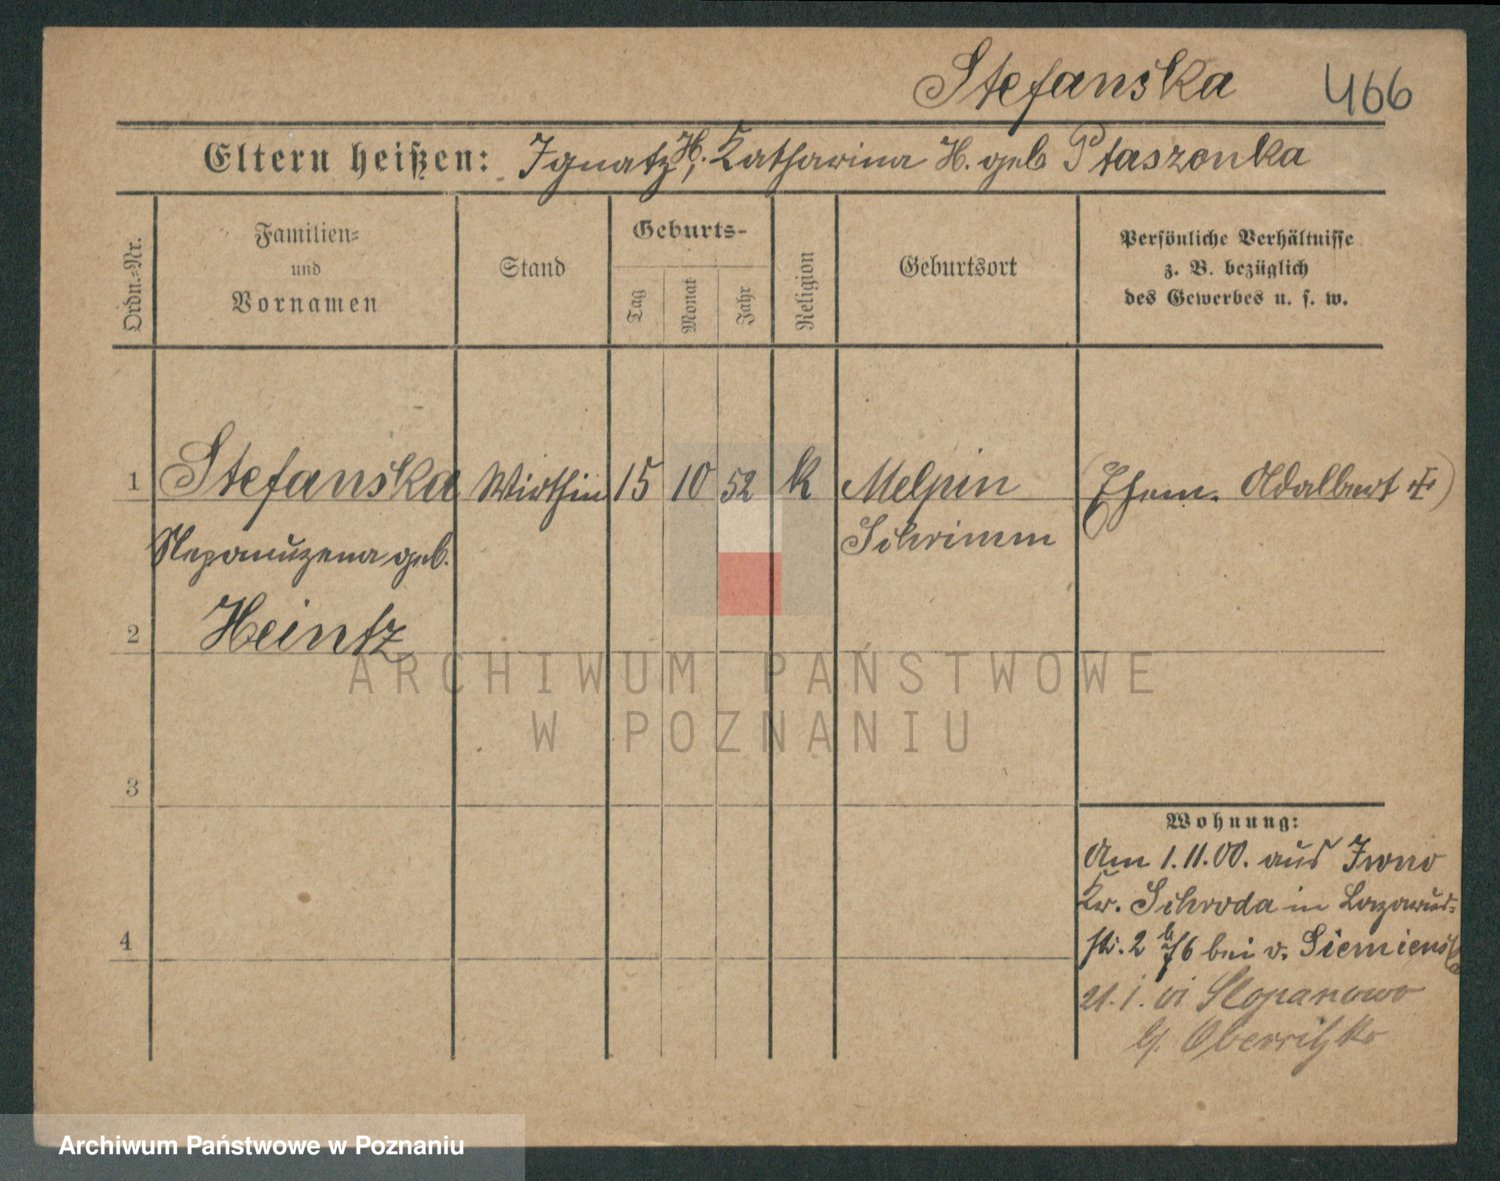 Stefanska 466
Eltern heißen: Ignatz H., Katharina H. geb Ptaszenka
Ordn.-Nr.
Familien-
und
Vornamen
Stand
Geburts-
Tag
Monat
Jahr
Religion
Geburtsort
Persönliche Verhältnisse
z. B. bezüglich
des Gewerbes u. s. w.
1 Stefanska Wirthin 15 10 52 k Melpin (Ehem. Adalbert +)
Nepomuzena geb. Schrimm
2 Heintz
ARCHIWUM PAŃSTWOWE
W POZNANIU
3
Wohnung:
Am 1.11.00. aus Iwno
4 Kr. Schroda in Lazarus-
str. 2 bei v. Siemienska
21. 1. Slopanowo
Oberritzko
Archiwum Państwowe w Poznaniu